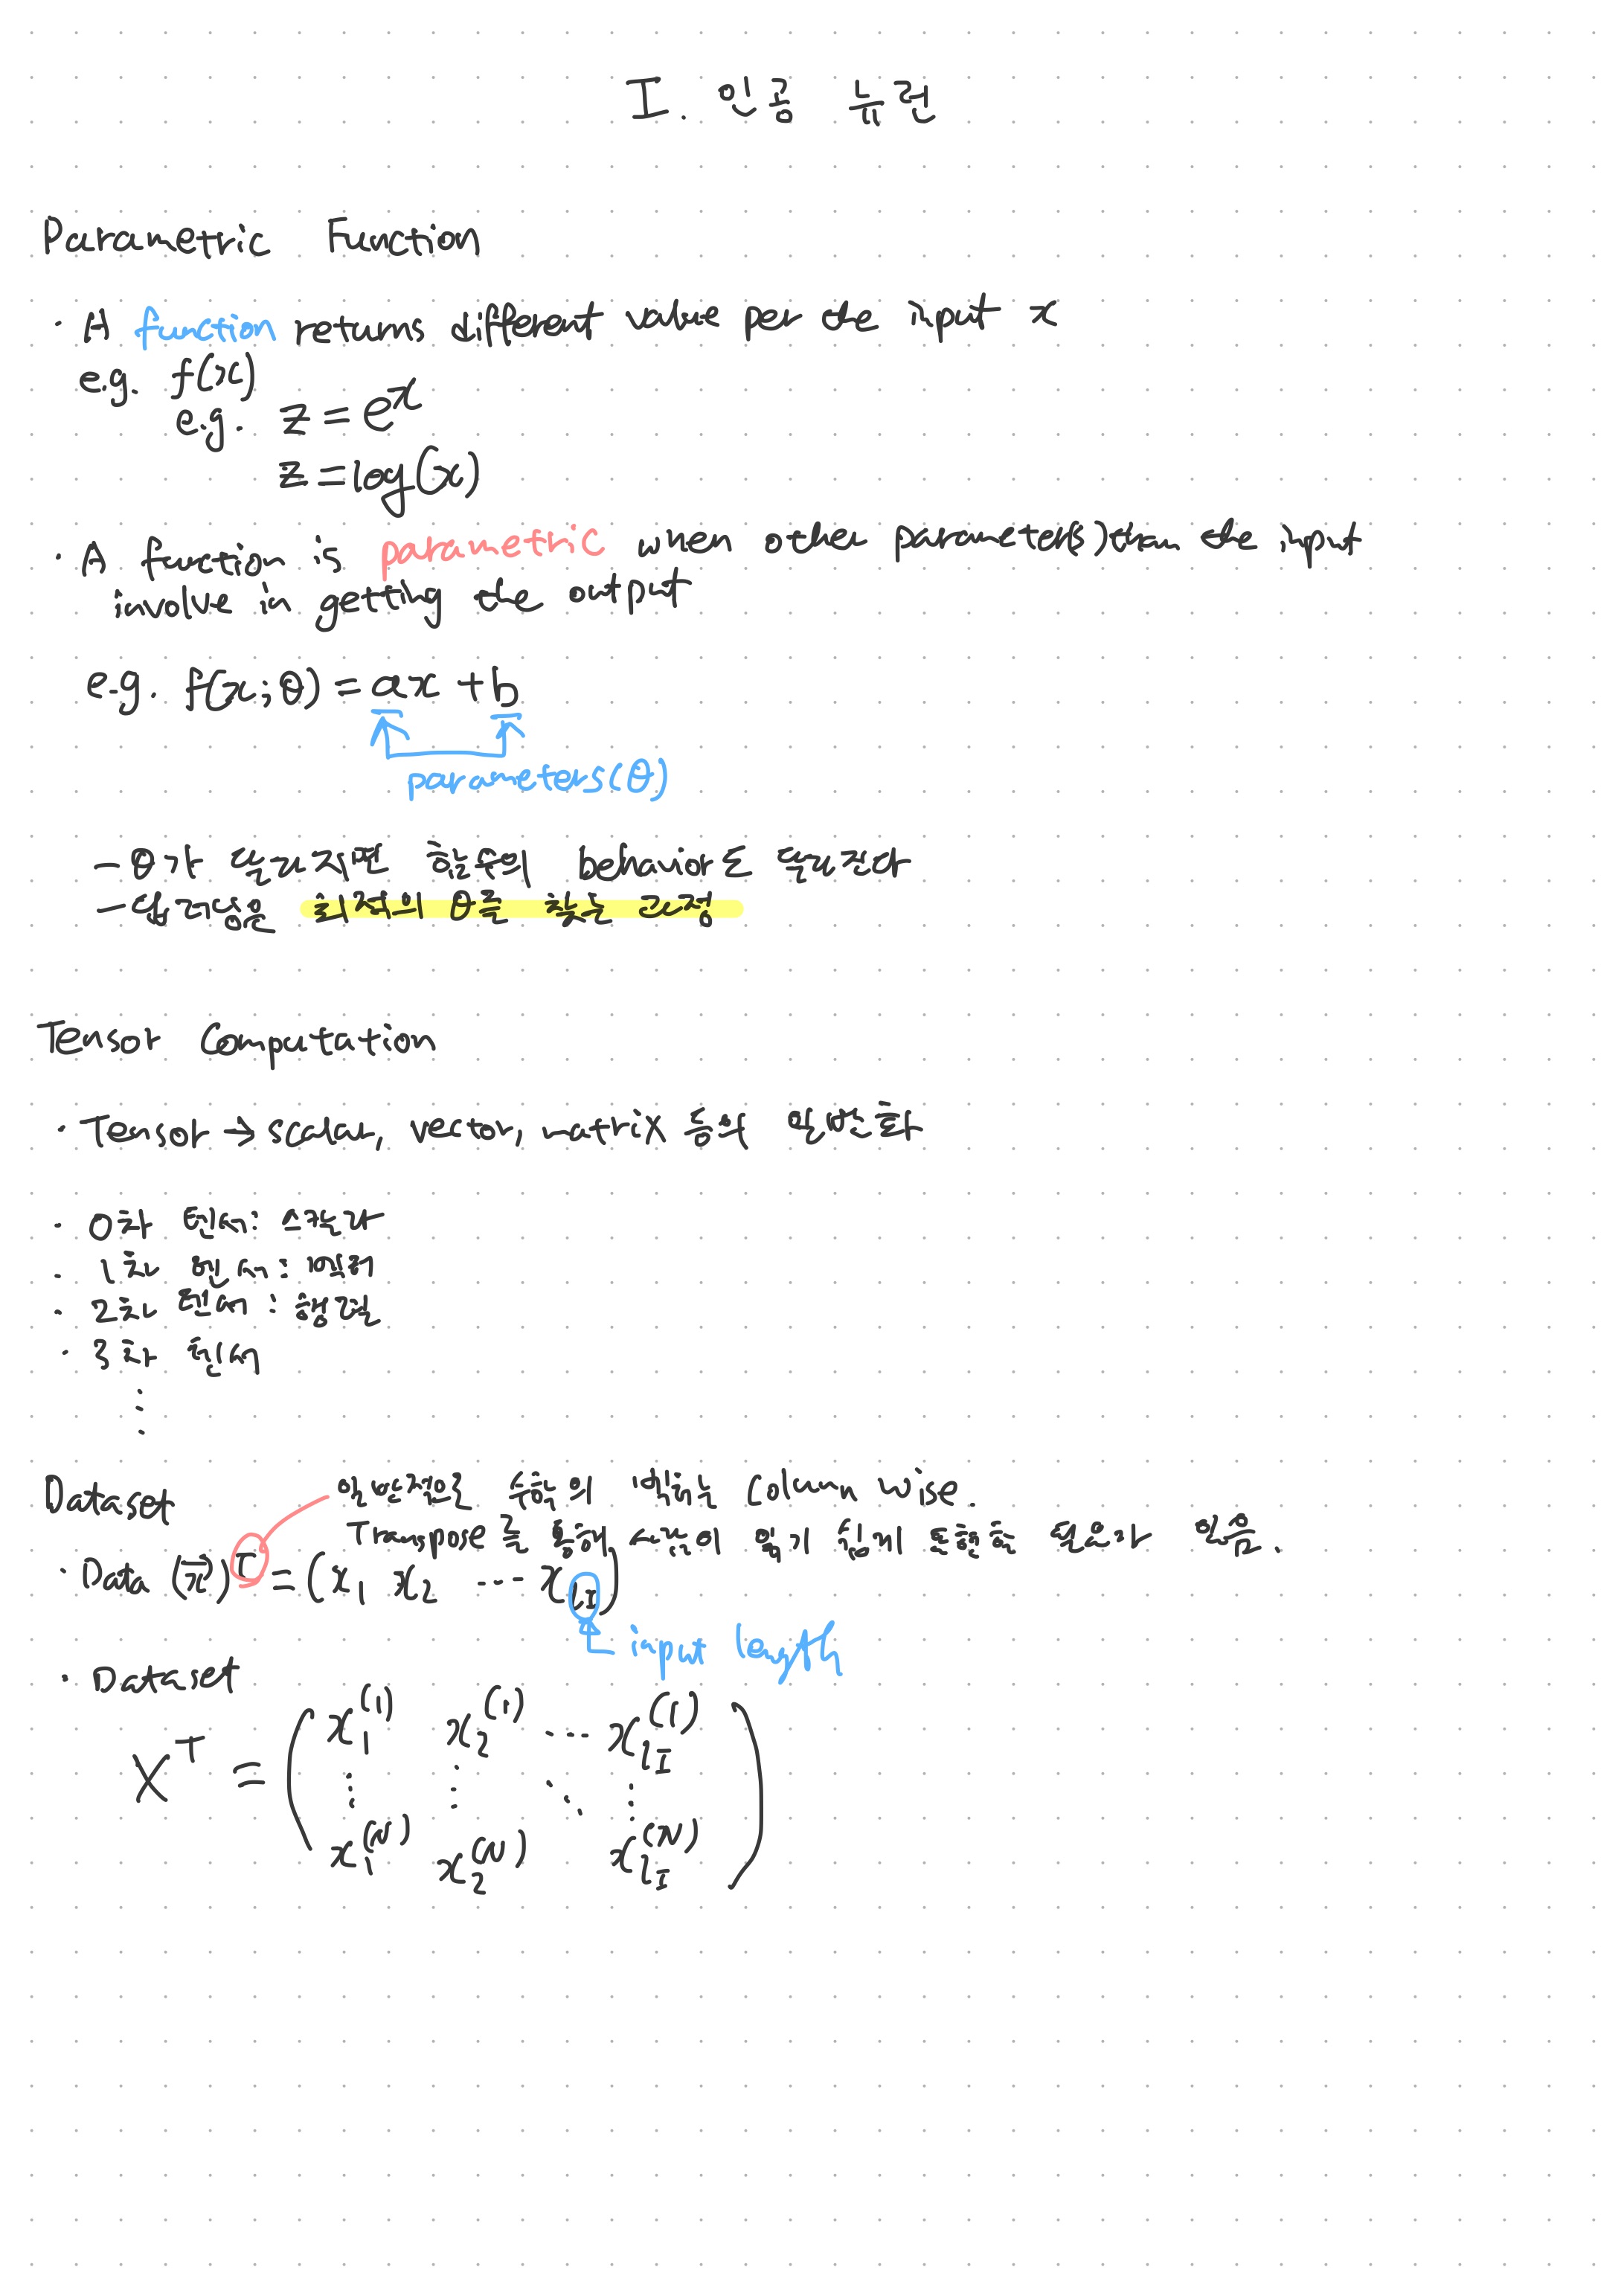 I. 인공 뉴런
Parametric Function
· A function returns different value per the input x
e.g. f(x)
e.g. z = e^x
z = log(x)
· A function is parametric when other parameter(s) than the input
involve in getting the output
e.g. f(x; θ) = ax + b
parameters(θ)
- θ가 달라지면 함수의 behavior도 달라진다
- 딥러닝은 최적의 θ를 찾는 과정
Tensor Computation
· Tensor → scalar, vector, matrix 등의 일반화
· 0차 텐서: 스칼라
· 1차 텐서: 벡터
· 2차 텐서: 행렬
· 3차 텐서
⋮
Dataset
일반적으로 수학의 벡터는 column wise.
Transpose를 통해 사람이 읽기 쉽게 표현한 것이라 있음.
· Data (x⃗)^T = (x₁ x₂ ... x_{l_I})
input length
· Dataset
X^T = ( x₁^(1) x₂^(1) ... x_{l_I}^(1)
⋮ ⋮ ⋱ ⋮
x₁^(N) x₂^(N) x_{l_I}^(N) )